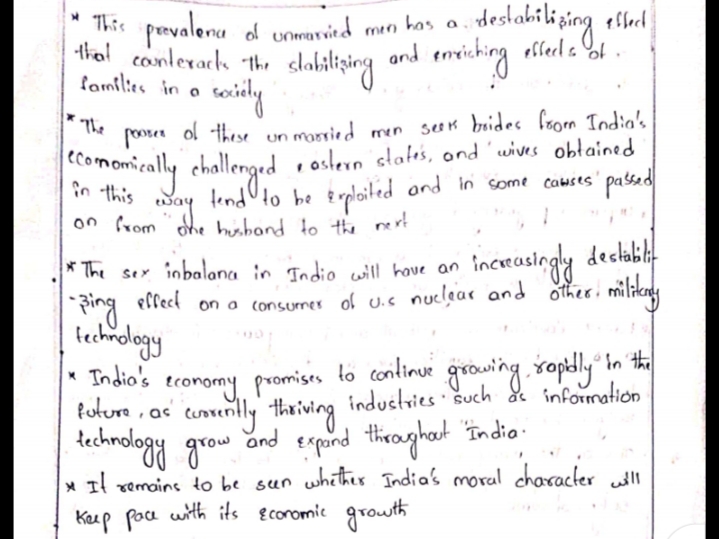 * This prevalence of unmarried men has a destabilizing effect
that counteracts the stabilizing and enriching effects of
families in a society
* The poorer of these unmarried men seek brides from India's
economically challenged eastern states, and wives obtained
in this way tend to be exploited and in some causes passed
on from one husband to the next
* The sex inbalance in India will have an increasingly destabili-
-zing effect on a consumer of u.s nuclear and other military
technology
* India's economy promises to continue growing rapidly in the
future, as currently thriving industries such as information
technology grow and expand throughout India.
* It remains to be seen whether India's moral character will
keep pace with its economic growth